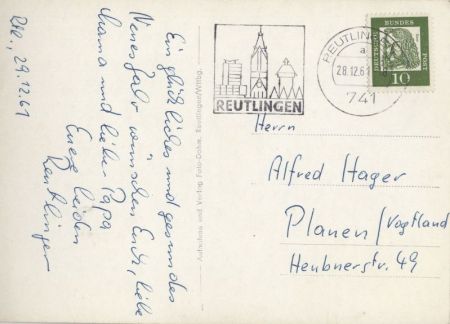 Rtl., 29.12.61
Ein glückliches und gesundes
Neues Jahr wünschen Euch, liebe
Mama und lieber Papa
Eure beiden
Reutlinger
Aufnahme und Verlag Foto-Dohm, Reutlingen/Wttbg.
REUTLINGEN
REUTLINGEN
a
28.12.61
741
DEUTSCHE
BUNDES
POST
10
Herrn
Alfred Hager
Planen/Vogtland
Heubnerstr. 49